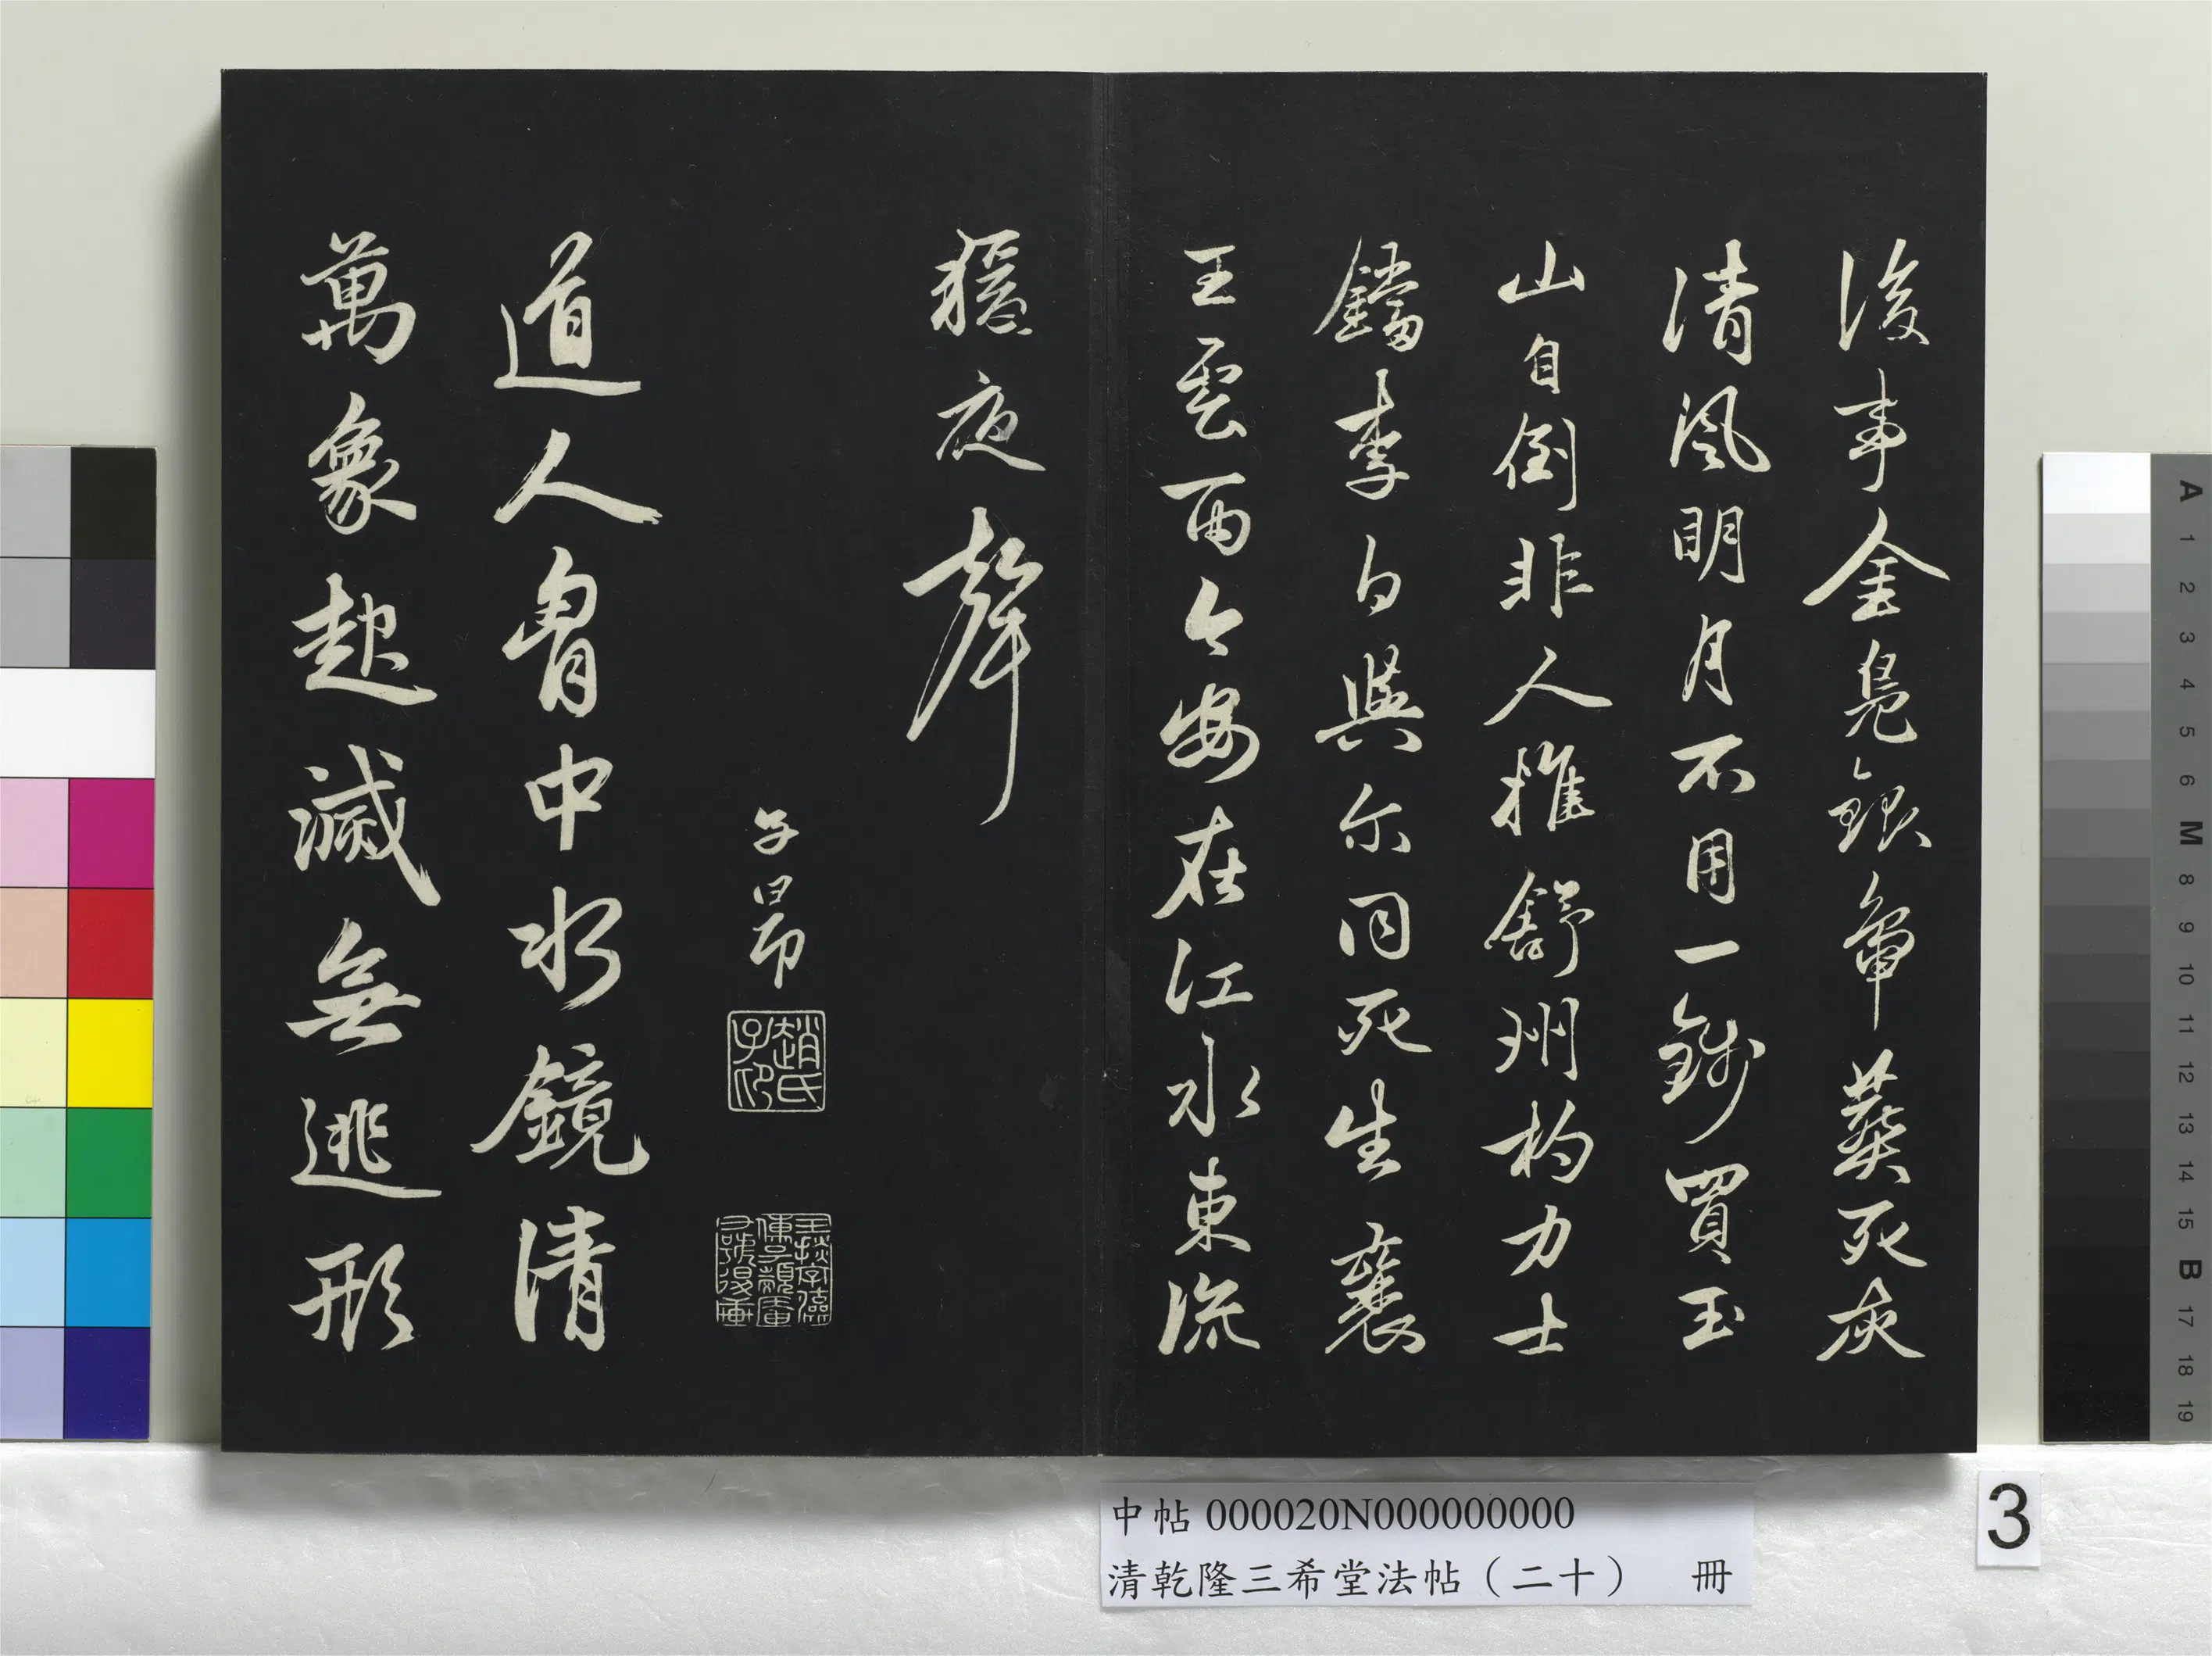 後事金鳧銀鴨葬死灰
清風明月不用一錢買玉
山自倒非人推舒州杓力士
鐺李白與尔同死生襄
王雲雨今安在江水東流
猿夜聲
子昂
趙氏子昂
道人胷中水鏡清
萬象起滅無逃形
中帖 000020N000000000
清乾隆三希堂法帖（二十） 冊
3
A 1 2 3 4 5 6 M 8 9 10 11 12 13 14 15 B 17 18 19